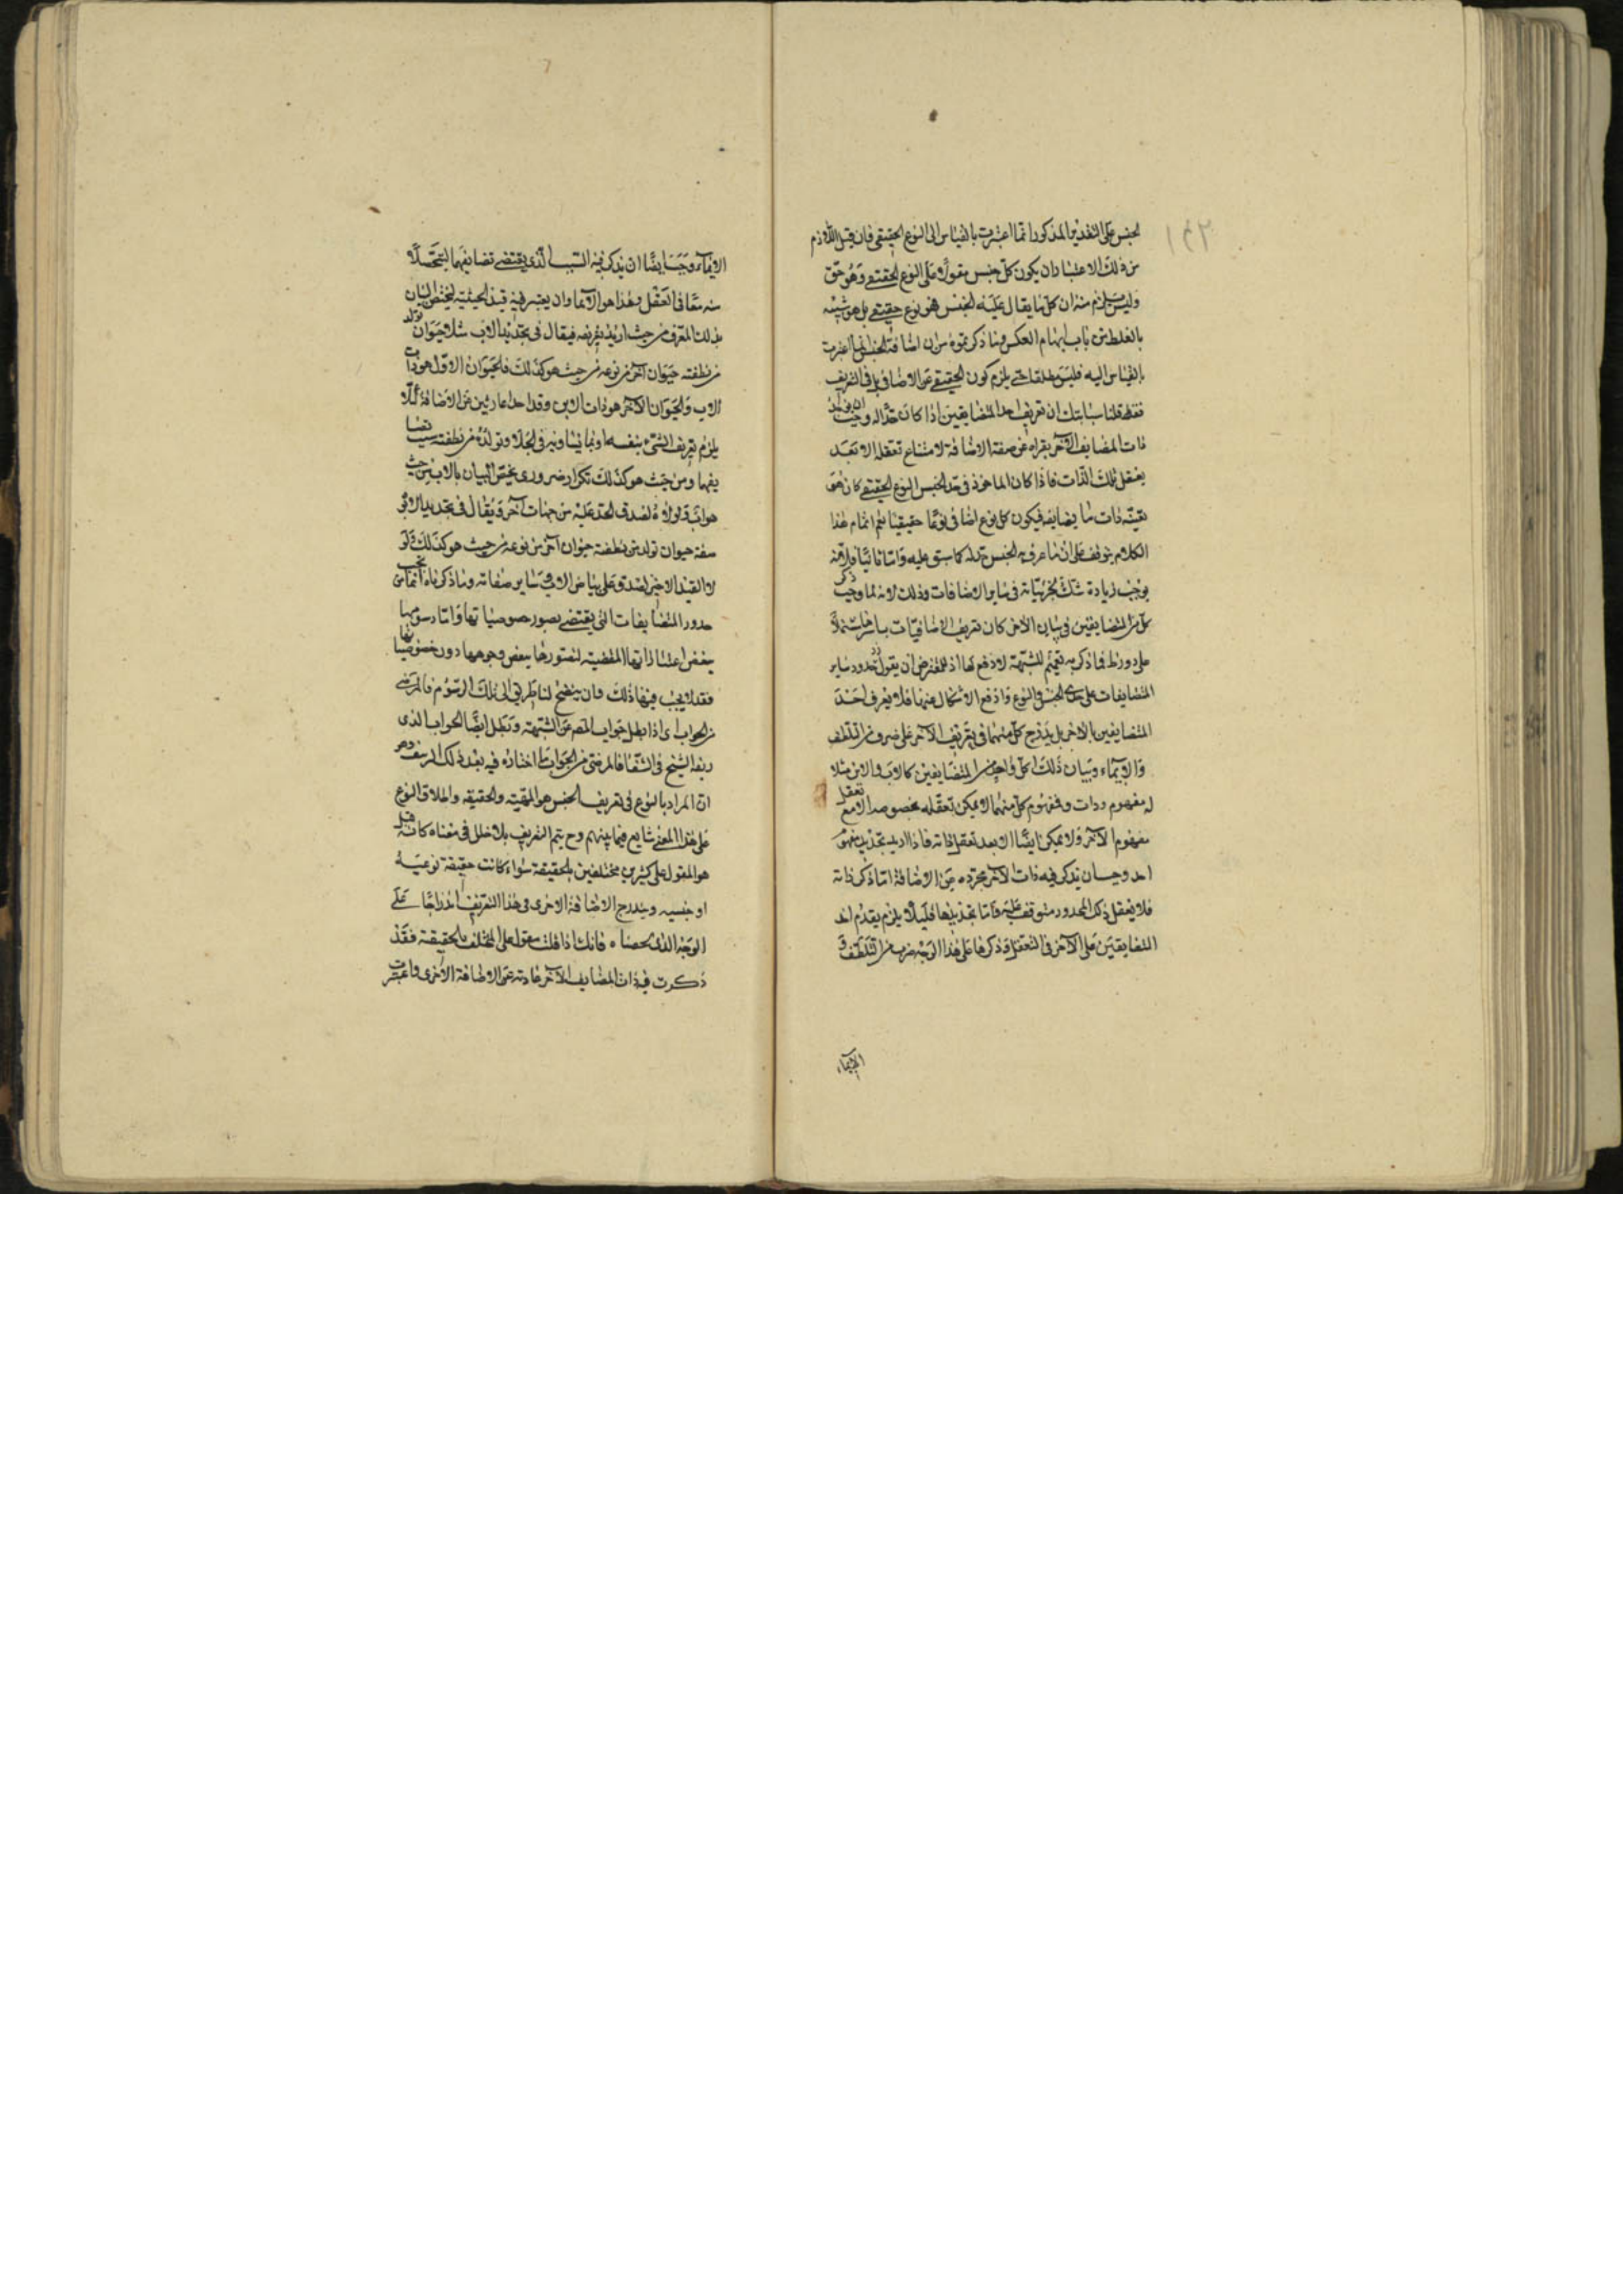 الجنس على التقدير المذكور انما اعتبرت بالقياس الى النوع الحقيقي فان قيل اللازم
من ذلك الاعتبار ان يكون كل جنس مقولا على النوع الحقيقي وهو حق
وليس يلزم منه ان كل ما يقال عليه الجنس فهو نوع حقيقي بل هو شبيه
بالغلط من باب ايهام العكس وما ذكرتموه من ان اضافة الجنس انما اعتبرت
بالقياس اليه فليس مطلقا حتى يلزم كون الحقيقي عن الاضافي بل في التعريف
فقط قلنا سبابتك ان تعريف احد المتضايفين اذا كان حدا له وجب ان يوخذ
ذات المضايف الآخر بقراه عن صفة الاضافة لامتناع تعقله الا بعد
تعقل تلك الذات فاذا كان الماخوذ في حد الجنس النوع الحقيقي كان هو
بعينه ذات ما يضايفه فيكون كل نوع اضافي نوعا حقيقيا ثم اتمام هذا
الكلام يتوقف على ان ما عرف به الجنس حد له كما سبق عليه واما ثانيا فلانه
يوجب زيادة شك بجريانه في ساير الاضافات وذلك لانه لما وجب ذكر
كل من المتضايفين في بيان الآخر كان تعريف الاضافيات باسرها مشتملا
على دور ظ فما ذكر به تعميم للشبهة لا دفع لها اذ للمعترض ان يقول حدود ساير
المتضايفات على حدي الجنس والنوع واذ دفع الاشكال عنها فلا يعرف احد
المتضايفين بالآخر بل يدرج كل منهما في تعريف الآخر على ضرب من التلطف
والايماء وبيان ذلك ان كل واحد من المتضايفين كالاب والابن مثلا
له مفهوم وذات ومفهوم كل منهما لا يمكن تعقله بخصوصه الا مع تعقل
مفهوم الآخر ولا يمكن ايضا الا بعد تعقل ذاته فاذا اريد تحديد مفهوم
احد وجب ان يذكر فيه ذات الآخر مجرده عن الاضافة اما ذكر ذاته
فلا تعقل ذلك المحدود متوقف عليه واما تجريدها فلئلا يلزم تقدم احد
المتضايفين على الآخر في التعقل وذكرها على هذا الوجه ضرب من التلطف و
الايماء
الايماء وجب ايضا ان يذكر فيه السبب الذي يقتضي تضايفهما ليتحصلا
منه معا في العقل وهذا هو الايماء وان يعتبر فيه قيد الحيثية ليختص البيان
بذلك المعرف من حيث اريد تعريفه فيقال في تحديد الاب مثلا حيوان تولد
من نطفته حيوان آخر من نوعه من حيث هو كذلك فالحيوان الاول هو ذات
الاب والحيوان الآخر هو ذات الابن وقد اخذا عاريين عن الاضافة لئلا
يلزم تعريف الشيء بنفسه او بما يساويه في الجلا وتولده من نطفته سبب تضا
يفهما ومن حيث هو كذلك تكرار ضروري يخص البيان بالاب من حيث
هو اب ولولاه لصدق الحد عليه من جهات آخر ويقال في تحديد الابن
صفة حيوان تولد من نطفته حيوان آخر من نوعه من حيث هو كذلك ولو
لا القيد الاخير لصدق على بياض الاب وساير صفاته وما ذكرناه انما يجب في
حدود المتضايفات التي يقتضي تصور خصوصياتها واما رسومها
ببعض اعتباراتها المفضية لتصورها ببعض وجوهها دون خصوصياتها
فقد لا يجب فيها ذلك فان يتضح لناظر في الى تلك الرسوم فالمرضي
من الجواب اى اذا بطل جواب المص عن الشبهة وبطل ايضا الجواب الذي
ريفه الشيخ في الشفا فالمرضي من الجواب ما اختاره فيه بعد ذلك الريف وهو
ان المراد بالنوع في تعريف الجنس هو المهية والحقيقة واطلاق النوع
على هذا المعنى شايع فيما بينهم وح يتم التعريف بلا خلل في معناه كانه قيل
هو المقول على كثيرين مختلفين بالحقيقة سواء كانت حقيقة نوعية
او جنسيه ويندرج الاضافة الاخرى في هذا التعريف اندراجا على
الوجه الذي لخصناه فانك اذا قلت مقول على المختلف بالحقيقة فقد
ذكرت فيه ذات المضايف الآخر عارية عن الاضافة الاخرى واعتبرت